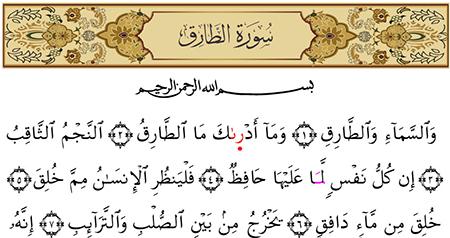 سُورَةُ الطَّارِقِ
بِسْمِ اللهِ الرَّحْمٰنِ الرَّحِيمِ
وَالسَّمَآءِ وَالطَّارِقِ ﴿١﴾ وَمَآ أَدْرٜىٰكَ مَا الطَّارِقُ ﴿٢﴾ النَّجْمُ الثَّاقِبُ
﴿٣﴾ إِن كُلُّ نَفْسٍ لَّمَا عَلَيْهَا حَافِظٌ ﴿٤﴾ فَلْيَنظُرِ الْإِنسَٰنُ مِمَّ خُلِقَ ﴿٥﴾
خُلِقَ مِن مَّآءٍ دَافِقٍ ﴿٦﴾ يَخْرُجُ مِنۢ بَيْنِ الصُّلْبِ وَالتَّرَآئِبِ ﴿٧﴾ إِنَّهُۥ